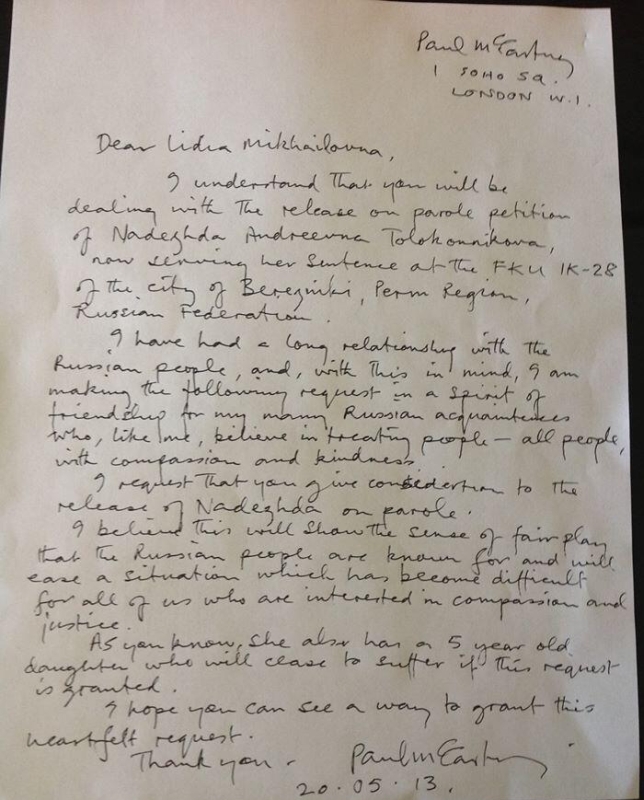 Paul McCartney
1 SOHO SQ.
LONDON W.1.
Dear Lidia Mikhailovna,
I understand that you will be
dealing with the release on parole petition
of Nadezhda Andreevna Tolokonnikova,
now serving her sentence at the FKU IK-28
of the city of Berezniki, Perm Region,
Russian Federation.
I have had a long relationship with the
Russian people, and, with this in mind, I am
making the following request in a spirit of
friendship for my many Russian acquaintances
who, like me, believe in treating people — all people,
with compassion and kindness.
I request that you give consideration to the
release of Nadezhda on parole.
I believe this will show the sense of fair play
that the Russian people are known for and will
ease a situation which has become difficult
for all of us who are interested in compassion and
justice.
As you know, she also has a 5 year old
daughter who will cease to suffer if this request
is granted.
I hope you can see a way to grant this
heartfelt request.
Thank you. Paul McCartney
20.05.13.